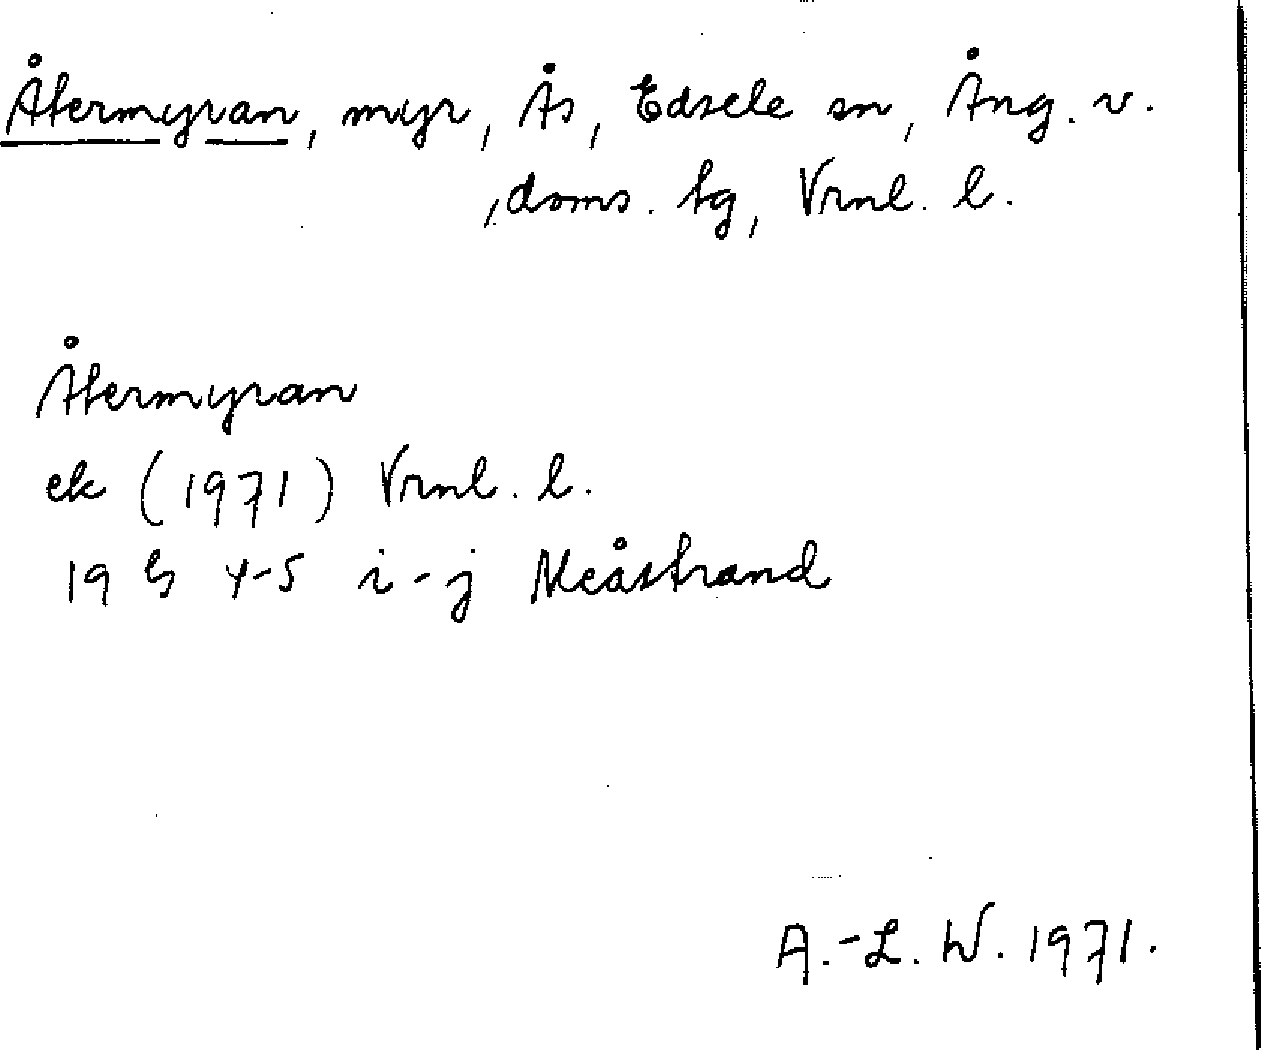 Återmyran, myr, Ås, Edsele sn, Ång. v.
, doms. tg, Vrnl. l.
Återmyran
ek (1971) Vrnl. l.
19 G 4-5 i-j Meåstrand
A.-L. W. 1971.